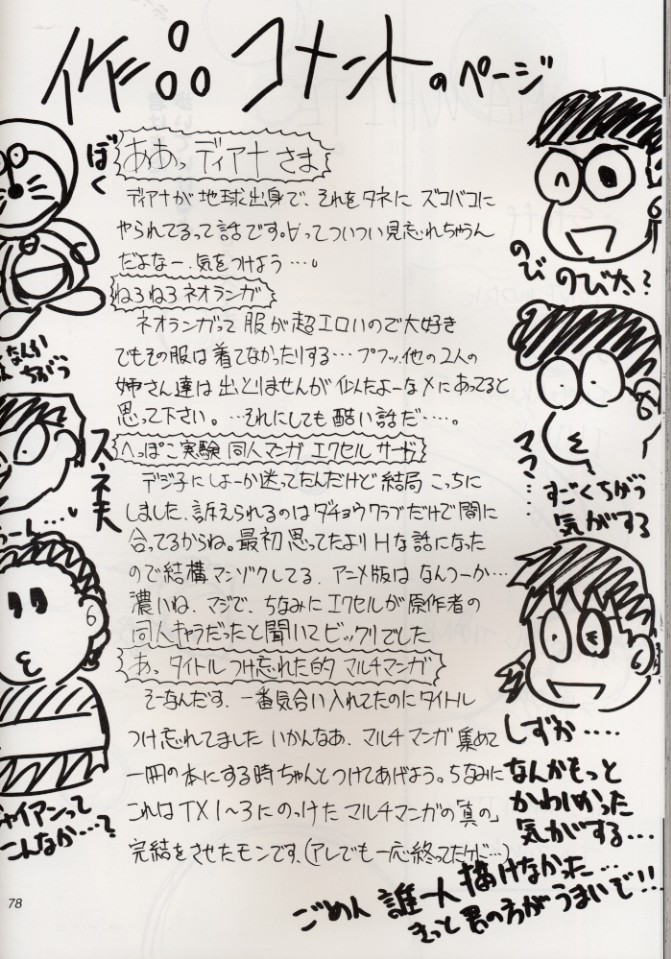 作品コメントのページ
ああっディアナさま
ディアナが地球出身で、それをタネにズコバコに
やられてるって話です。∀ってついつい見忘れちゃうん
だよなー、気をつけよう…。
ねろねろネオランガ
ネオランガって服が超エロいので大好き
でもその服は着てなかったりする…プフッ、他の2人の
姉さん達は出とりませんが似たよーなメにあってると
思って下さい。…それにしても酷い話だ…。
へっぽこ実験同人マンガ エクセルサード
デジ子にしよーか迷ってたんだけど結局こっちに
しました、訴えられるのはダチョウクラブだけで間に
合ってるからね。最初思ってたよりHな話になった
ので結構マンゾクしてる、アニメ版はなんつーか…
濃いね、マジで、ちなみにエクセルが原作者の
同人キャラだったと聞いてビックリでした
あ、タイトルつけ忘れた的マルチマンガ
そーなんだす、一番気合い入れてたのにタイトル
つけ忘れてました いかんなあ、マルチマンガ集めて
一冊の本にする時ちゃんとつけてあげよう。ちなみに
これはTX1〜3にのっけたマルチマンガの「真の」
完結をさせたモンです、(アレでも一応終ってたけど…)
ぼく
なんか
ちがう
スネ夫
うーん…
ジャイアンって
こんなか…?
のび のび太?
ママ…
すごくちがう
気がする
しずか….
なんかもっと
かわいかった
気がする…
ごめん 誰一人 描けなかった…
きっと君の方がうまいで!!
78